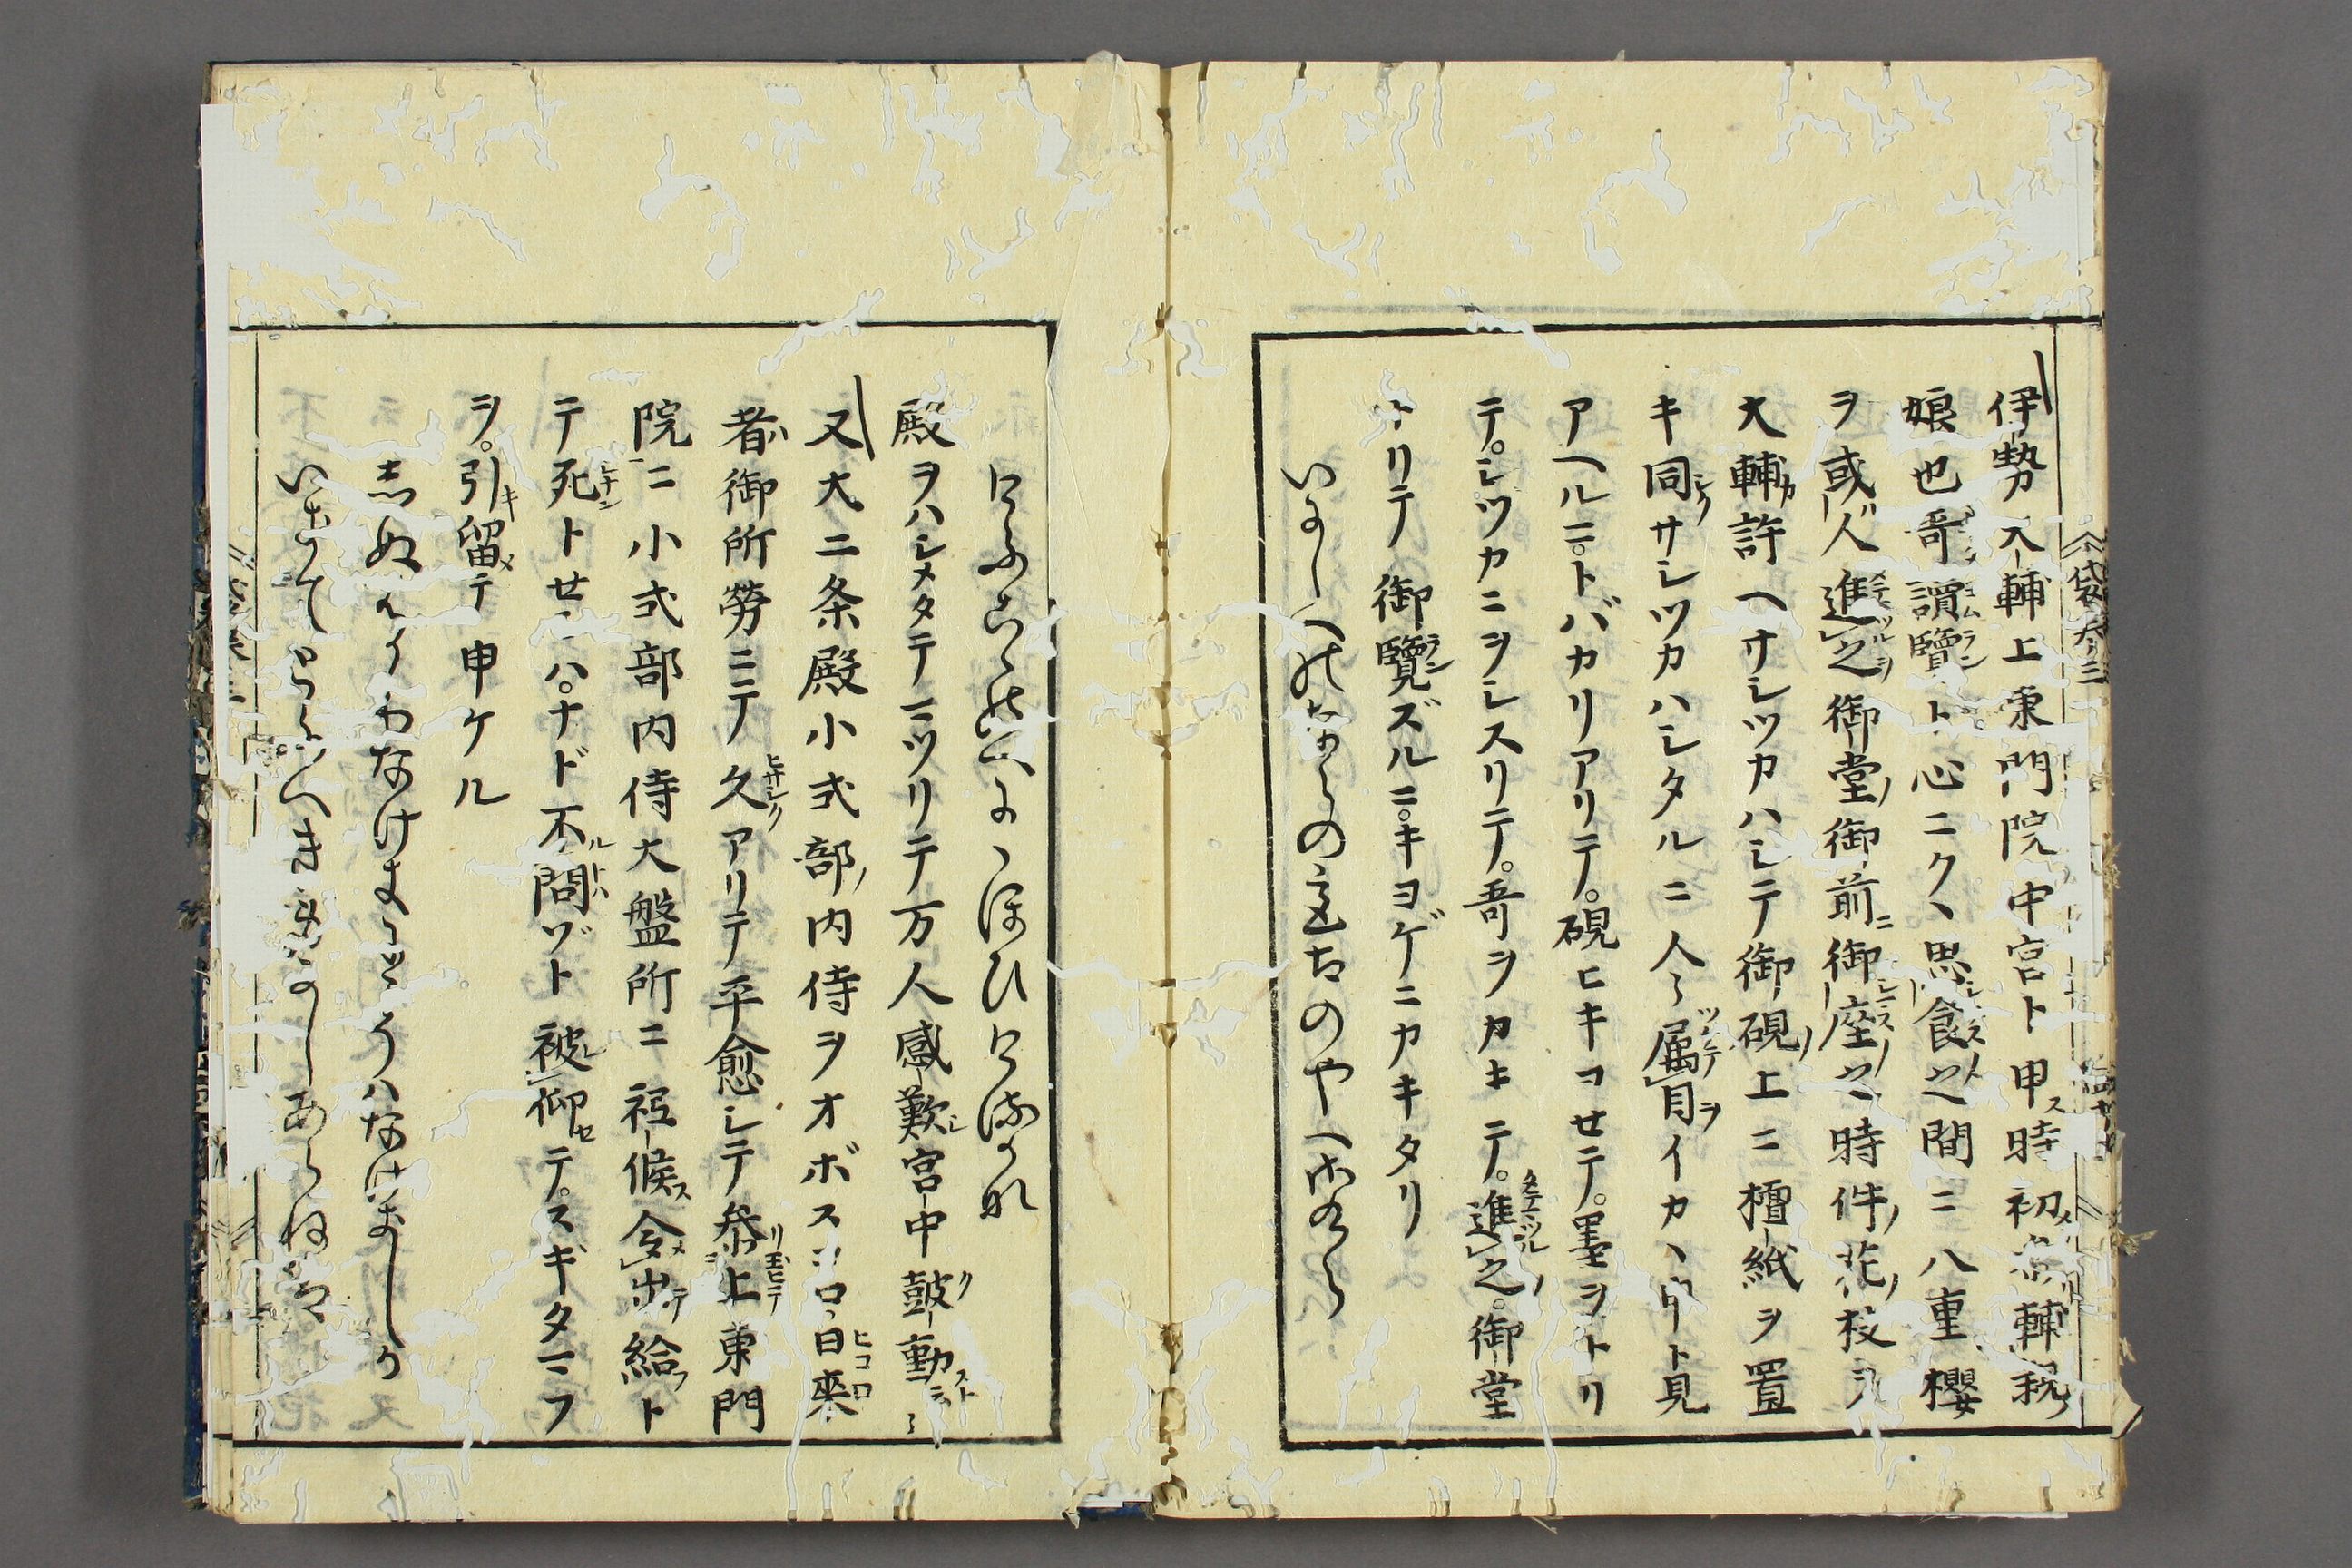 伊勢大輔上東門院中宮ト申ス時初参輔親
娘也哥讀覽ト心ニクヽ思食之間ニ八重櫻
ヲ或人進之御堂御前ニ御座之時件ノ花ノ枝ヲ
大輔カ許ヘサシツカハシテ御硯ノ上ニ檀紙ヲ置
キ同クサシツカハシタルニ人々属目ヲイカヽ ト見
アヘルニ。トバカリアリテ。硯ヒキヨセテ。墨ヲトリ
テ。シツカニヲシスリテ。哥ヲカキテ。進之。御堂
トリテ御覽ズルニ。キヨゲニカキタリ
いにしへのならの京のやへさくら
けふこゝのへにゝほひけるかな
殿ヲハシメタテマツリテ万人感歎シ宮中鼓動ス
又大二条殿小式部ノ内侍ヲオボスコロ日來
者御所勞ニテ久アリテ平愈シテ参上東門
院ニ小式部内侍大盤所ニ祗候ス令出給フト
テ死トせシハ。ナド不問ゾト被仰セテ。スギタマフ
ヲ。引キ留メテ申ケル
志ぬはかりなけきにこそハなけきしか
いきてとふへき身にしあらねは